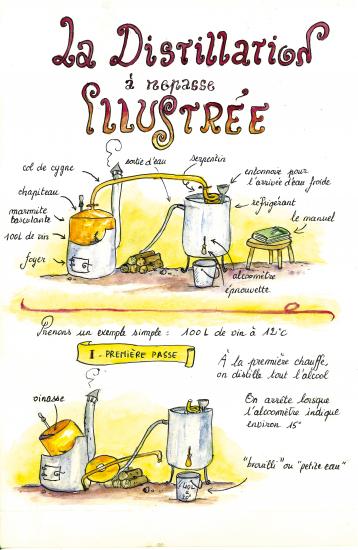 La Distillation
à repasse
ILLUSTRÉE
sortie d'eau
serpentin
col de cygne
entonnoir pour
l'arrivée d'eau froide
chapiteau
réfrigérant
marmite
basculante
le manuel
100L de vin
foyer
alcoomètre
éprouvette
Prenons un exemple simple : 100L de vin à 12°c
I - PREMIÈRE PASSE
À la première chauffe,
on distille tout l'alcool
vinasse
On arrête lorsque
l'alcoomètre indique
environ 15°
"brouilli" ou "petite eau"
40L